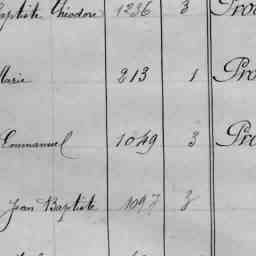 Baptiste Théodore 1236 3 Pro
Marie 213 1 Pro
Emmanuel 1049 3 Pro
Jean Baptiste 1097 3